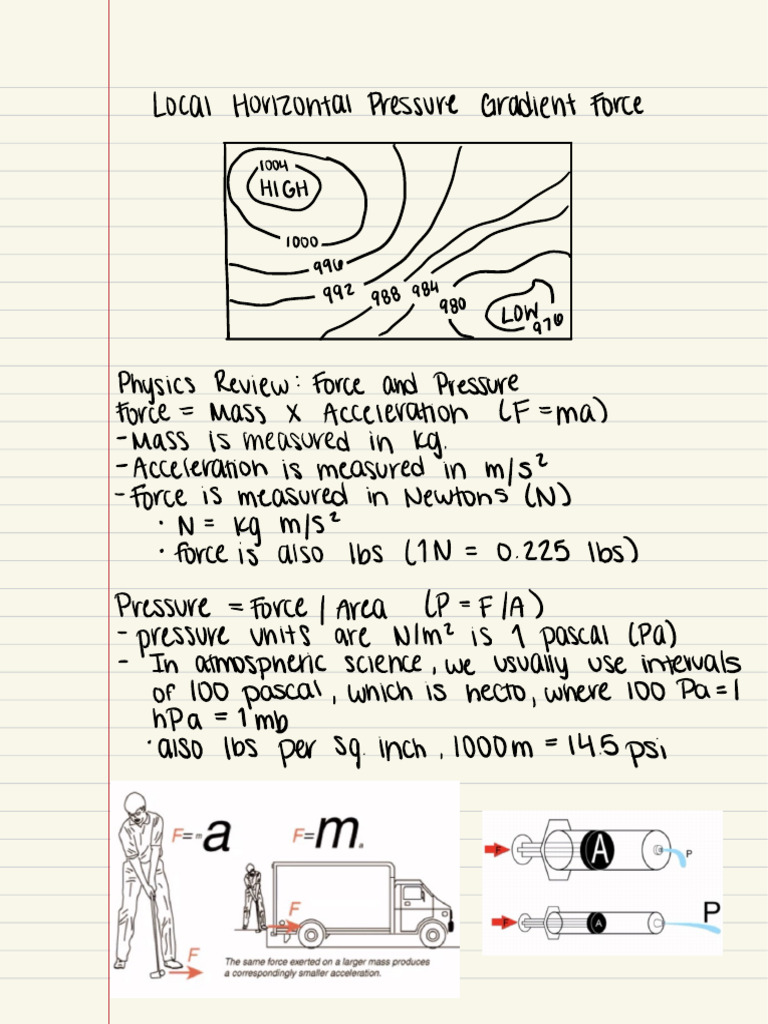 Local Horizontal Pressure Gradient Force
1004
HIGH
1000
996
992 988 984
980
LOW
976
Physics Review: Force and Pressure
Force = Mass x Acceleration (F = ma)
- Mass is measured in kg.
- Acceleration is measured in m/s²
- Force is measured in Newtons (N)
· N = kg m/s²
· force is also lbs (1N = 0.225 lbs)
Pressure = Force / Area (P = F/A)
- pressure units are N/m² is 1 pascal (Pa)
- In atmospheric science, we usually use intervals
of 100 pascal, which is hecto, where 100 Pa = 1
hPa = 1 mb
· also lbs per sq. inch, 1000m = 14.5 psi
F=ma
F=ma
F
F
The same force exerted on a larger mass produces
a correspondingly smaller acceleration.
F A P
F A P